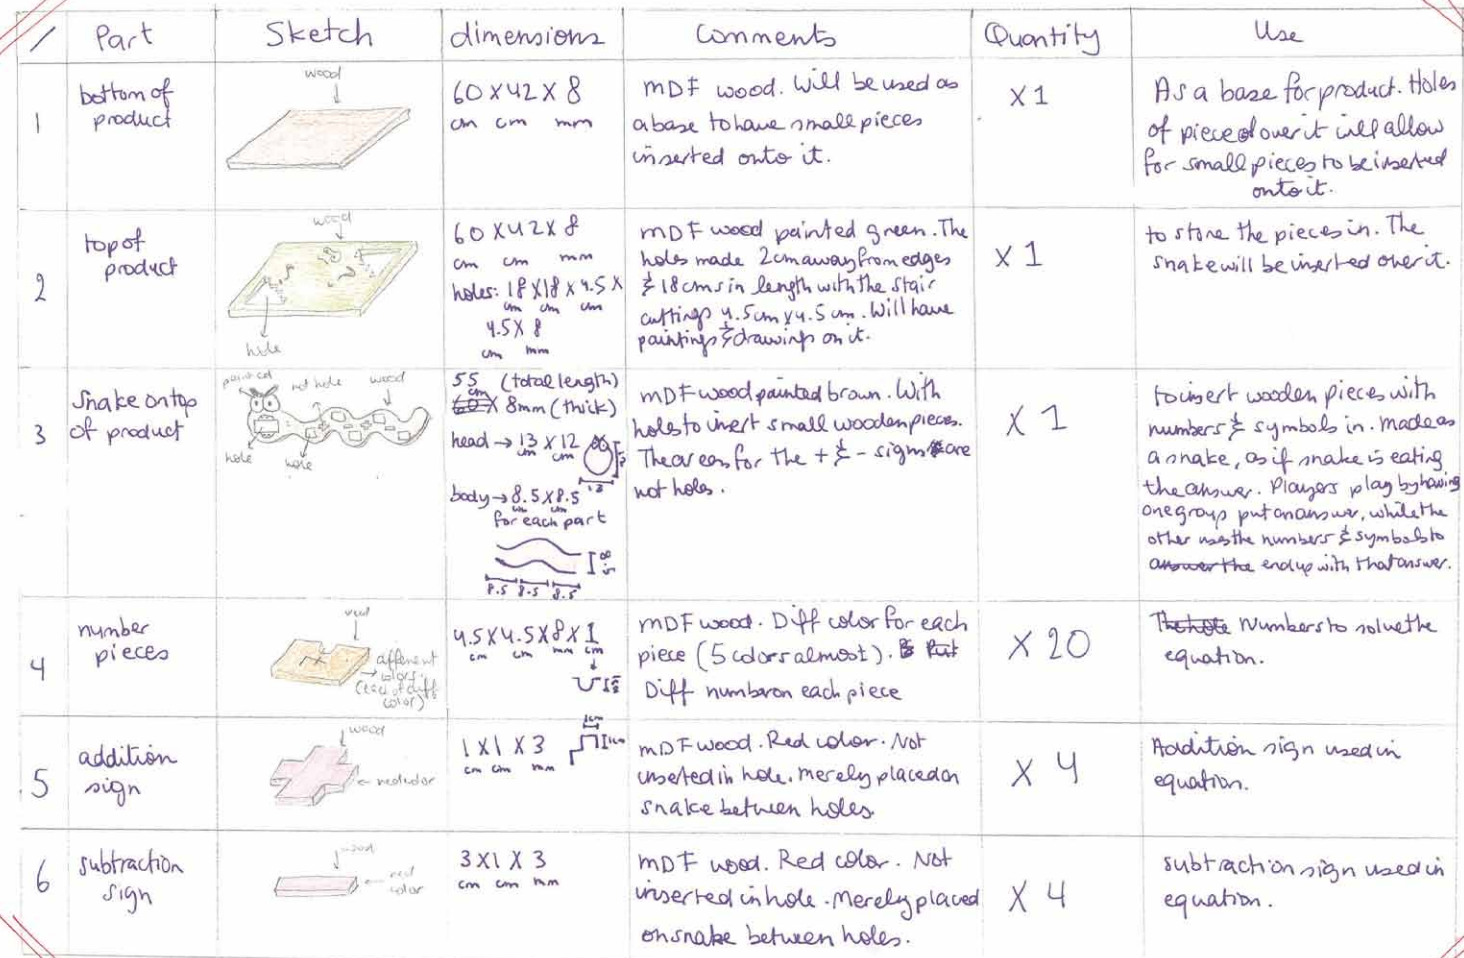 / Part Sketch dimensions Comments Quantity Use
1
bottom of
product
wood
60 X 42 X 8
cm cm mm
MDF wood. Will be used as
a base to have small pieces
inserted onto it.
X 1
As a base for product. Holes
of piece over it will allow
for small pieces to be inserted
onto it.
2
top of
product
wood
hole
60 X 42 X 8
cm cm mm
holes: 18 X 18 X 4.5 X
cm cm cm
4.5 X 8
cm mm
MDF wood painted green. The
holes made 2cm away from edges
& 18cms in length with the stair
cuttings 4.5cm x 4.5 cm. Will have
paintings & drawings on it.
X 1
to store the pieces in. The
snake will be inserted over it.
3
Snake on top
of product
painted not hole wood
hole hole
55 (total length)
cm
60 X 8mm (thick)
head → 13 X 12
cm cm
13
body → 8.5 X 8.5
cm cm
for each part
8.5
8.5 8.5 8.5
MDF wood painted brown. With
holes to insert small wooden pieces.
The areas for the + & - signs are
not holes.
X 1
to insert wooden pieces with
numbers & symbols in. Made as
a snake, as if snake is eating
the answer. Players play by having
one group put an answer, while the
other uses the numbers & symbols to
answer the end up with that answer.
4
number
pieces
wood
different
colors.
(each of diff
color)
4.5 X 4.5 X 8 X 1
cm cm mm cm
MDF wood. Diff color for each
piece (5 colors almost). Put
Diff number on each piece
X 20
The hole Numbers to solve the
equation.
5
addition
sign
wood
red color
1 X 1 X 3
cm cm mm
1cm
1cm
MDF wood. Red color. Not
inserted in hole. Merely placed on
snake between holes.
X 4
Addition sign used in
equation.
6
subtraction
sign
wood
red
color
3 X 1 X 3
cm cm mm
MDF wood. Red color. Not
inserted in hole. Merely placed
on snake between holes.
X 4
subtraction sign used in
equation.